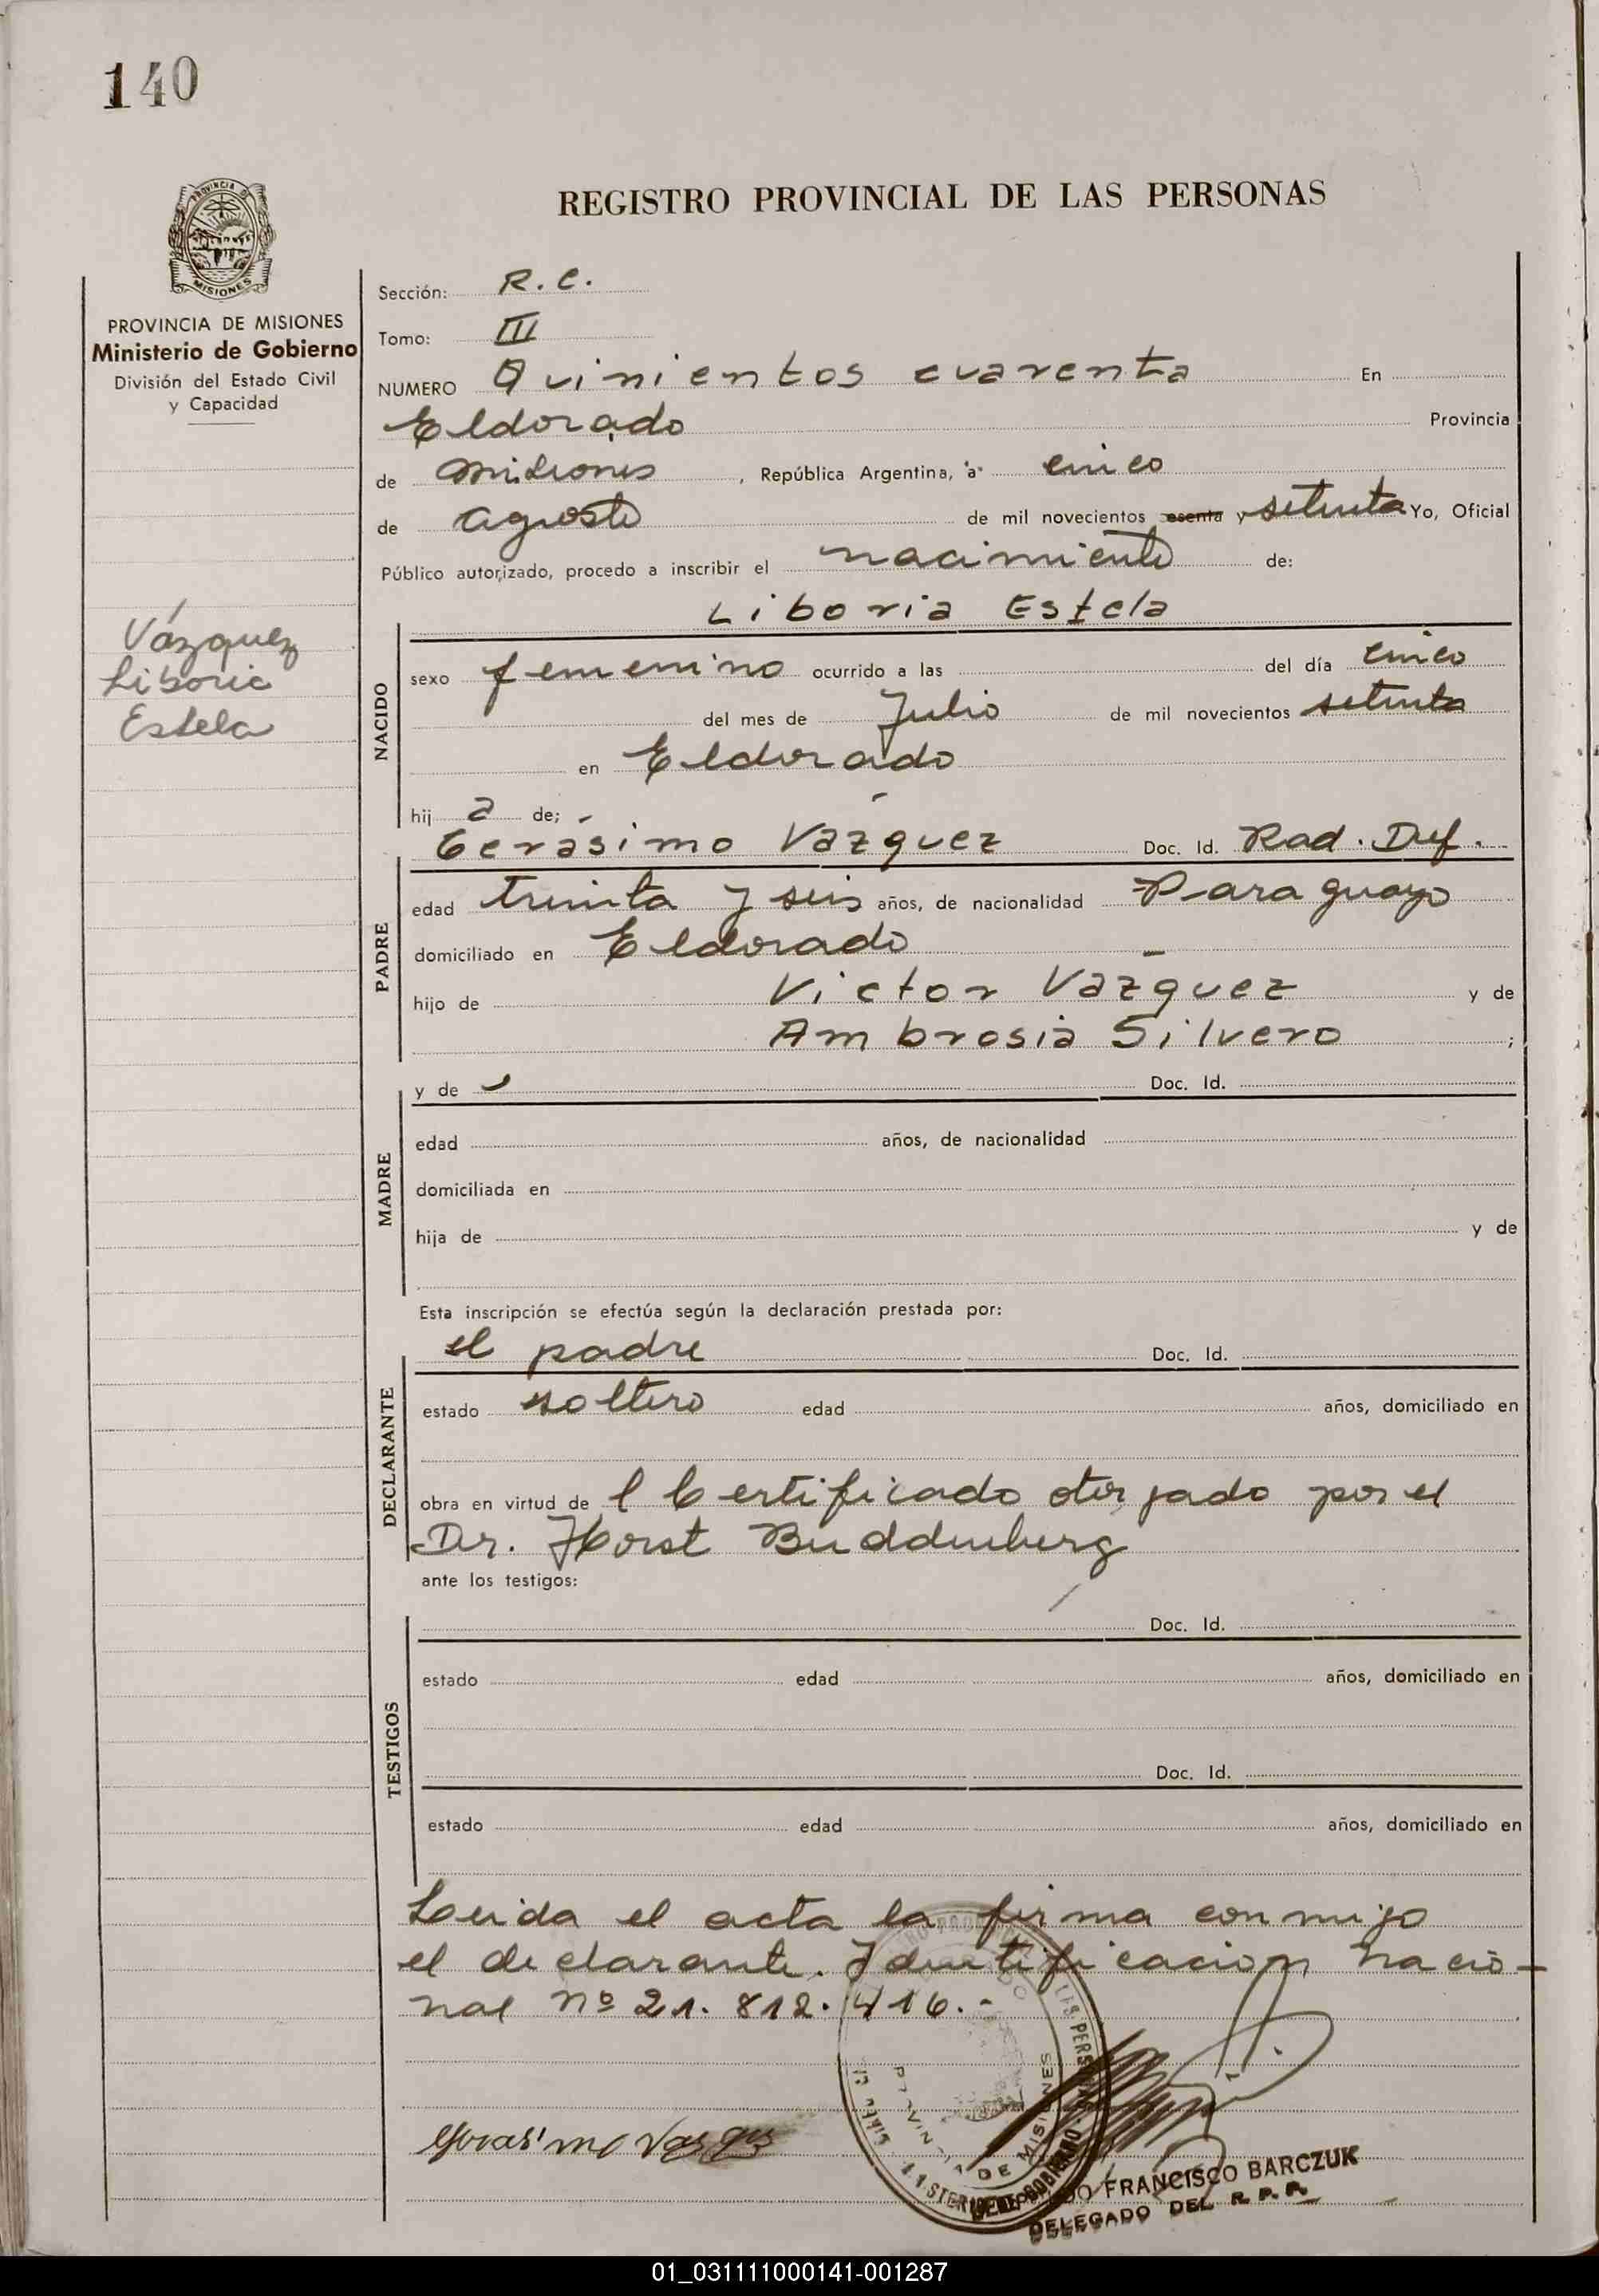 140
REGISTRO PROVINCIAL DE LAS PERSONAS
PROVINCIA DE
MISIONES
PROVINCIA DE MISIONES
Ministerio de Gobierno
División del Estado Civil
y Capacidad
Sección: R. C.
Tomo: III
NUMERO Quinientos cuarenta En
Eldorado Provincia
de Misiones, República Argentina, a cinco
de agosto de mil novecientos esenta y setenta Yo, Oficial
Público autorizado, procedo a inscribir el nacimiento de:
Liboria Estela
Vázquez
Liboria
Estela
NACIDO
sexo femenino ocurrido a las del día cinco
del mes de Julio de mil novecientos setenta
en Eldorado
hij a de; -
Gerásimo Vazquez Doc. Id. Rad. Def.
PADRE
edad treinta y seis años, de nacionalidad Paraguayo
domiciliado en Eldorado -
hijo de Victor Vazquez y de
Ambrosia Silvero ;
MADRE
y de Doc. Id.
edad años, de nacionalidad
domiciliada en
hija de y de
Esta inscripción se efectúa según la declaración prestada por:
el padre Doc. Id.
DECLARANTE
estado soltero edad años, domiciliado en
obra en virtud de l Certificado otorjado por el
Dr. Horst Buddenberg
ante los testigos:
TESTIGOS
Doc. Id.
estado edad años, domiciliado en
Doc. Id.
estado edad años, domiciliado en
Leida el acta la firma conmigo
el declarante. Identificacion nacio-
nal nº 21. 812. 416.-
DE MISIONES
FRANCISCO BARCZUK
DELEGADO DEL R. P. P.
01_031111000141-001287